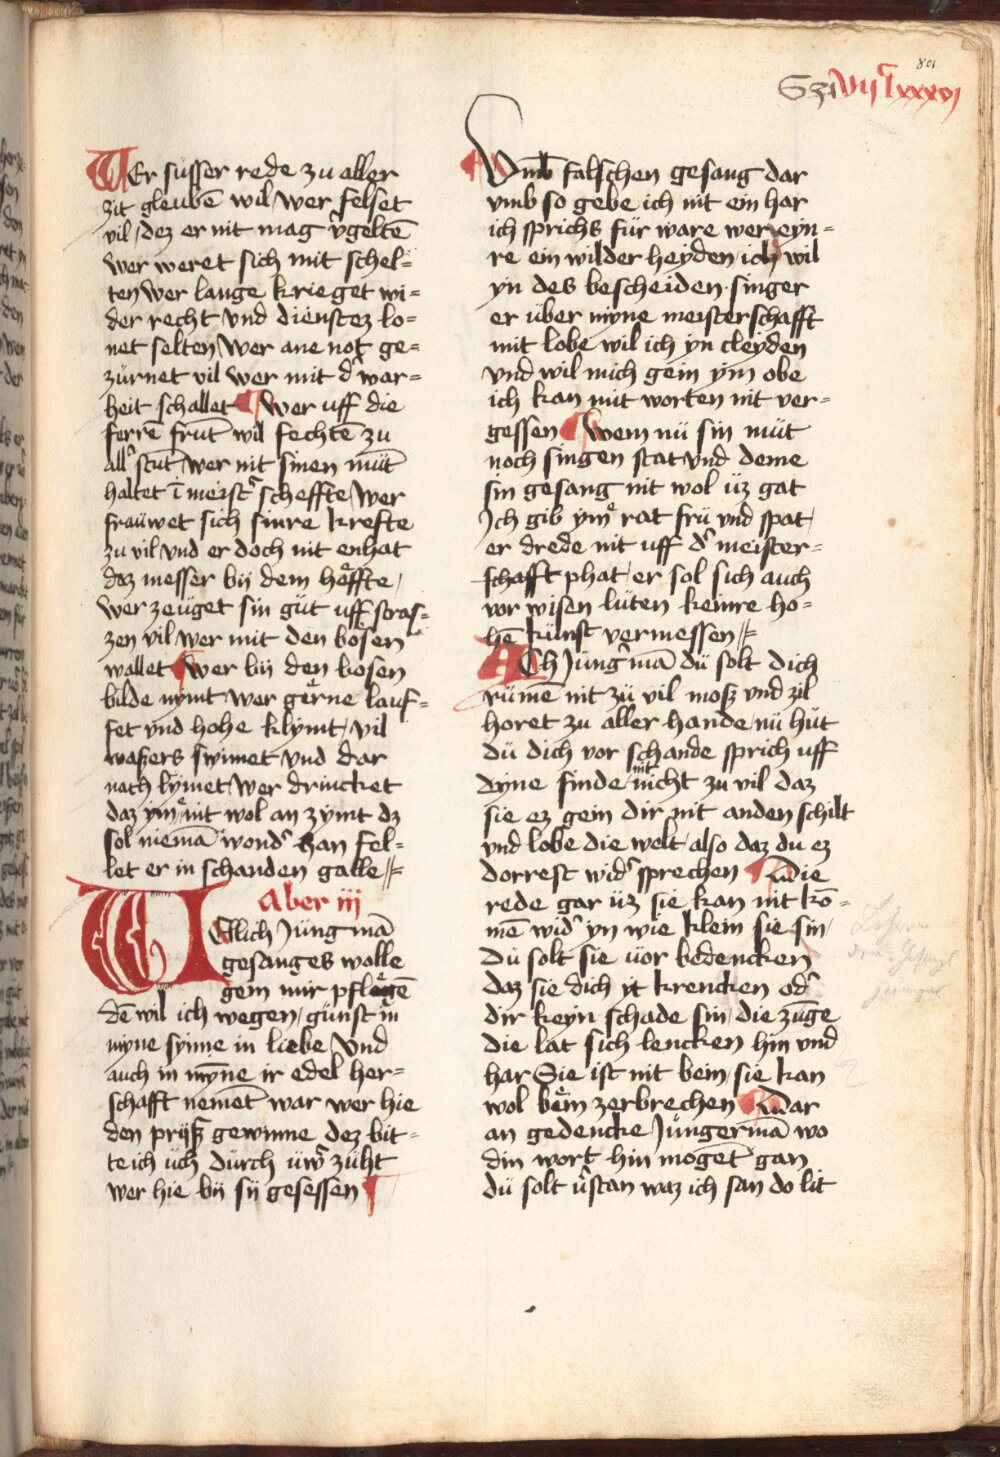 801
VII lxxxvj
WEr süsser rede zu aller
zit gleubē wil / wer felset
vil / dez er nit mag v̉geltē
wer weret sich mit schel=
ten wer lange krieget wi=
der recht vnd dienstez lo=
net selten / Wer ane not ge=
zürnet vil wer mit d̉ war=
heit schallet ¶ Wer uff die
ferrē frūt wil fechtē zu
all̉ stūt / wer nit sinen mūt
haltet ī meist̉ scheffte / wer
frauwet sich sinre krefte
zu vil vnd er doch nit enhat
daz messer bÿ dem heffte /
wer zeüget sin güt uff stras=
zen vil wer mit den bösen
wallet ¶ wer bÿ den bosen
bilde nÿmt wer gerne lauf=
fet vnd hohe klÿmt / vil
waßers swimet vnd dar
nach lÿmet / Wer drincket
daz ÿm nit wol an zÿmt dz
sol niemā wond̉ han fel=
let er in schanden galle //
Aber iij
WEllich Jüng mā
gesanges wolle
gein mir pflegē
dē wil ich wegen / günst in
mÿne sÿnne in liebe Vnd
auch in mÿne ir edel her=
schafft nemēt war wer hie
den prÿß gewinne dez bit=
te ich üch dürch üw̉ züht
wer hie bÿ sÿ gesessen ¶
Vmb falschen gesang dar
vmb so gebe ich nit ein har
ich sprichs für ware wer eyn=
re ein wilder heÿden / ich wil
ÿn des bescheiden singer
er über mÿne meisterschafft
mit lobe wil ich ÿn cleÿden
vnd wil mich gein ÿm obe
ich kan mit worten nit ver=
gessen ¶ Wem nü sin müt
noch singen stat vnd deme
sin gesang nit wol üz gat
Ich gib ÿm rat frü vnd spat /
er drede nit uff d̉ meister=
schafft phat / er sol sich auch
vor wisen lüten keinre ho=
hē künst vermessen //
ACh Jüng̉ mā dü solt dich
rümē nit zü vil moß vnd zil
horet zu aller hande / nü hüt
dü dich vor schande sprich uff
dÿne finde nit nicht zu vil daz
sie ez gein dir nit anden schilt
vnd lobe die welt / also daz du ez
dorrest wid̉ sprechen ¶ Die
rede gar üz sie kan nit kō=
mē wid̉ ÿn wie klein sie sin /
Dü solt sie üor bedencken
daz sie dich ÿt krencken od̉
dir keÿn schade sin / die zunge
die lat sich lencken hin vnd
har Sie ist nit bein / sie kan
wol bein zerbrechen ¶ Dar
an gedencke Jüngermā wo
din wort hin mogēt gan
dü solt v̉stan waz ich san do lit